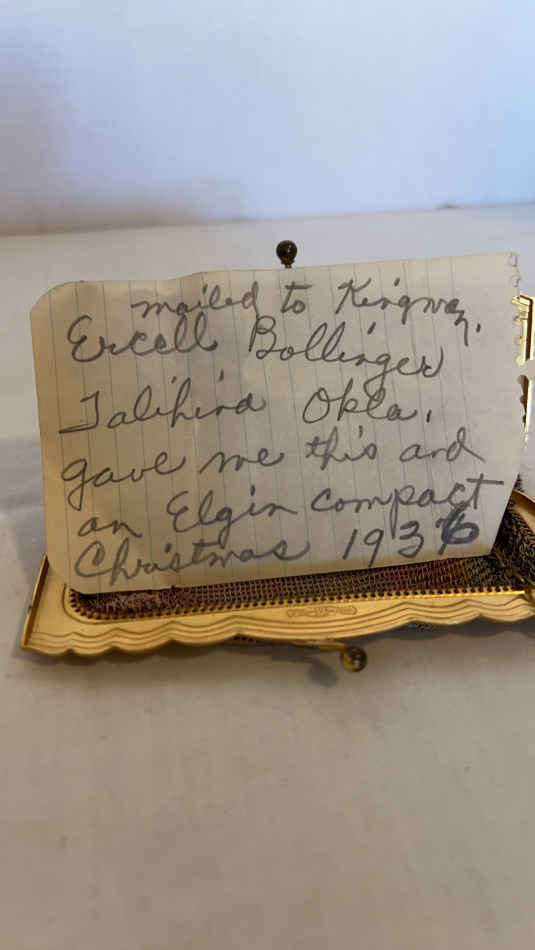 mailed to Kingway,
Ercell Bollinger
Talihina Okla.
gave me this and
an Elgin compact
Christmas 1936